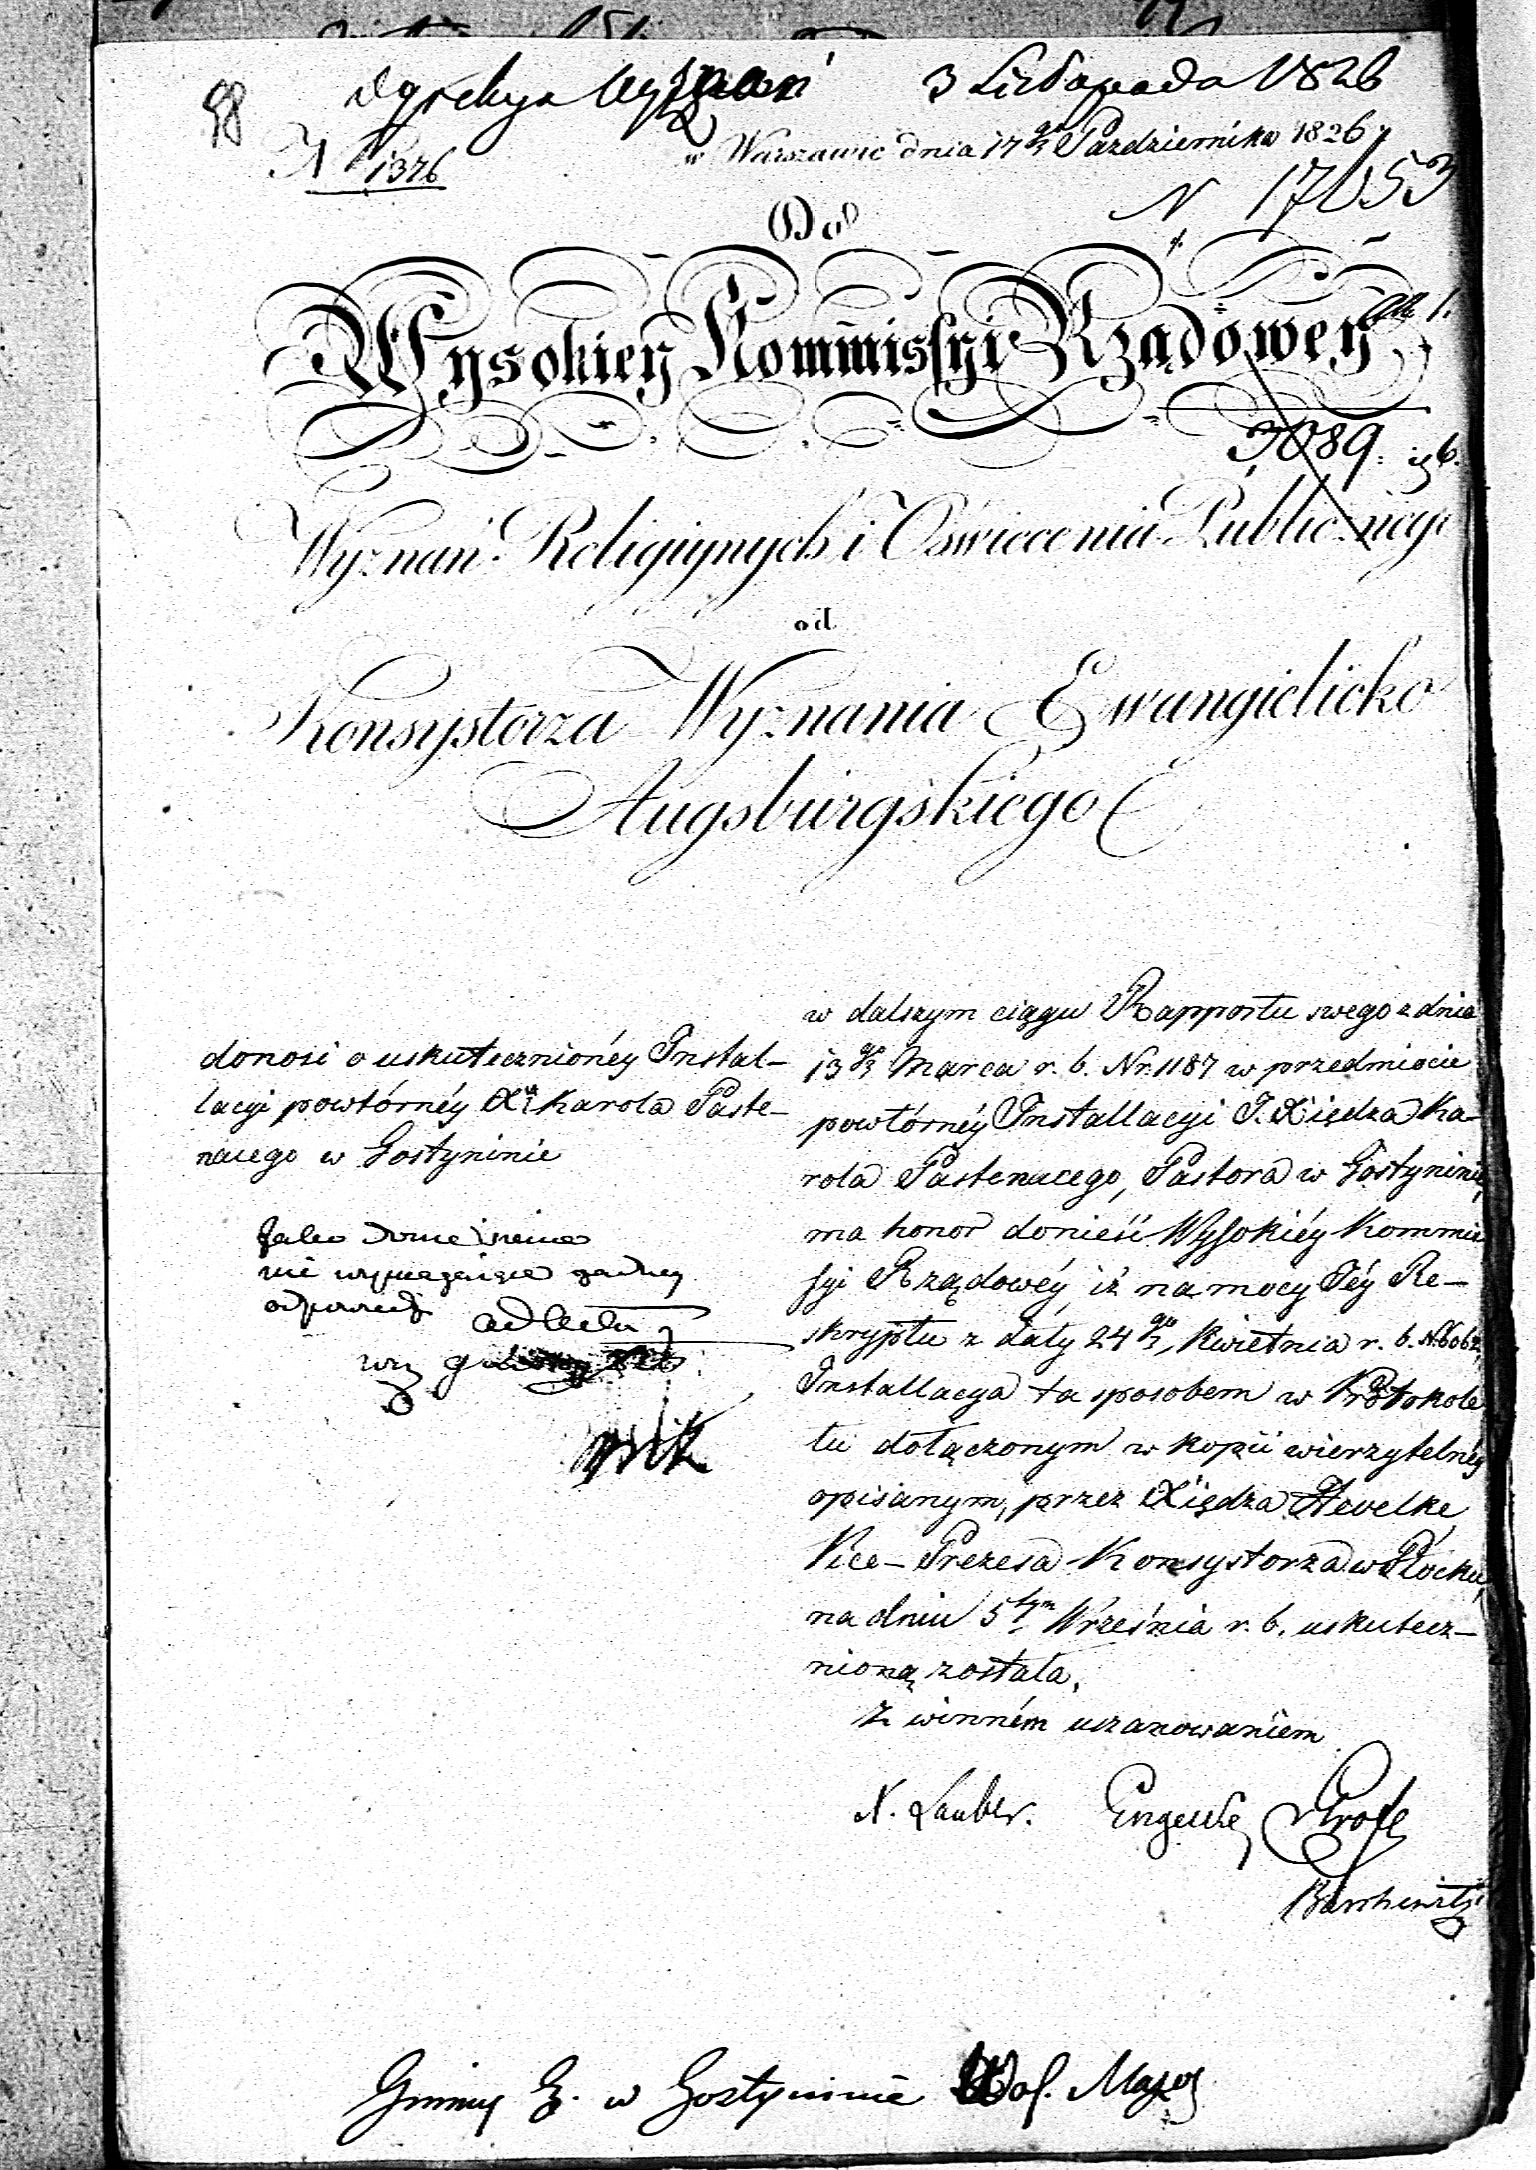 98
Dyrekcya Wyznań 3 Listopada 1826
N 1376
w Warszawie dnia 17go Pazdziernika 1826
N 17053
Do
Wysokiey Kommissyi Rządowey
3089
Wyznań Religiynych i Oświecenia Publicznego
od
Konsystorza Wyznania Ewangielicko
Augsburgskiego
donosi o uskutecznionéy Instal-
lacyi powtórnéy Xa Karola Paste-
nacego w Gostyninie
Jako
nie wymagaiące żadney
ad acta
w dalszym ciągu Rapportu swego z dnia
13go Marca r. b. Nr. 1187 w przedmiocie
powtórnéy Installacyi J. Xiędza Ka-
rola Pastenacego, Pastora w Gostyninie,
ma honor donieść Wysokiéy Kommis
syi Rządowéy, iż na mocy Jéy Re-
skryptu z daty 24go Kwietnia r. b.
Installacya ta sposobem w Protokole
tu dołączonym w kopii wierzytelnéy
opisanym, przez Xiędza Hevelke
Vice-Prezesa Konsystorza w Płocku,
na dniu 5tym Września r. b. uskutecz-
nioną została.
Z winném uszanowaniem
X. Lauber.
Gminy E. w Gostyninie Wof. Mazow